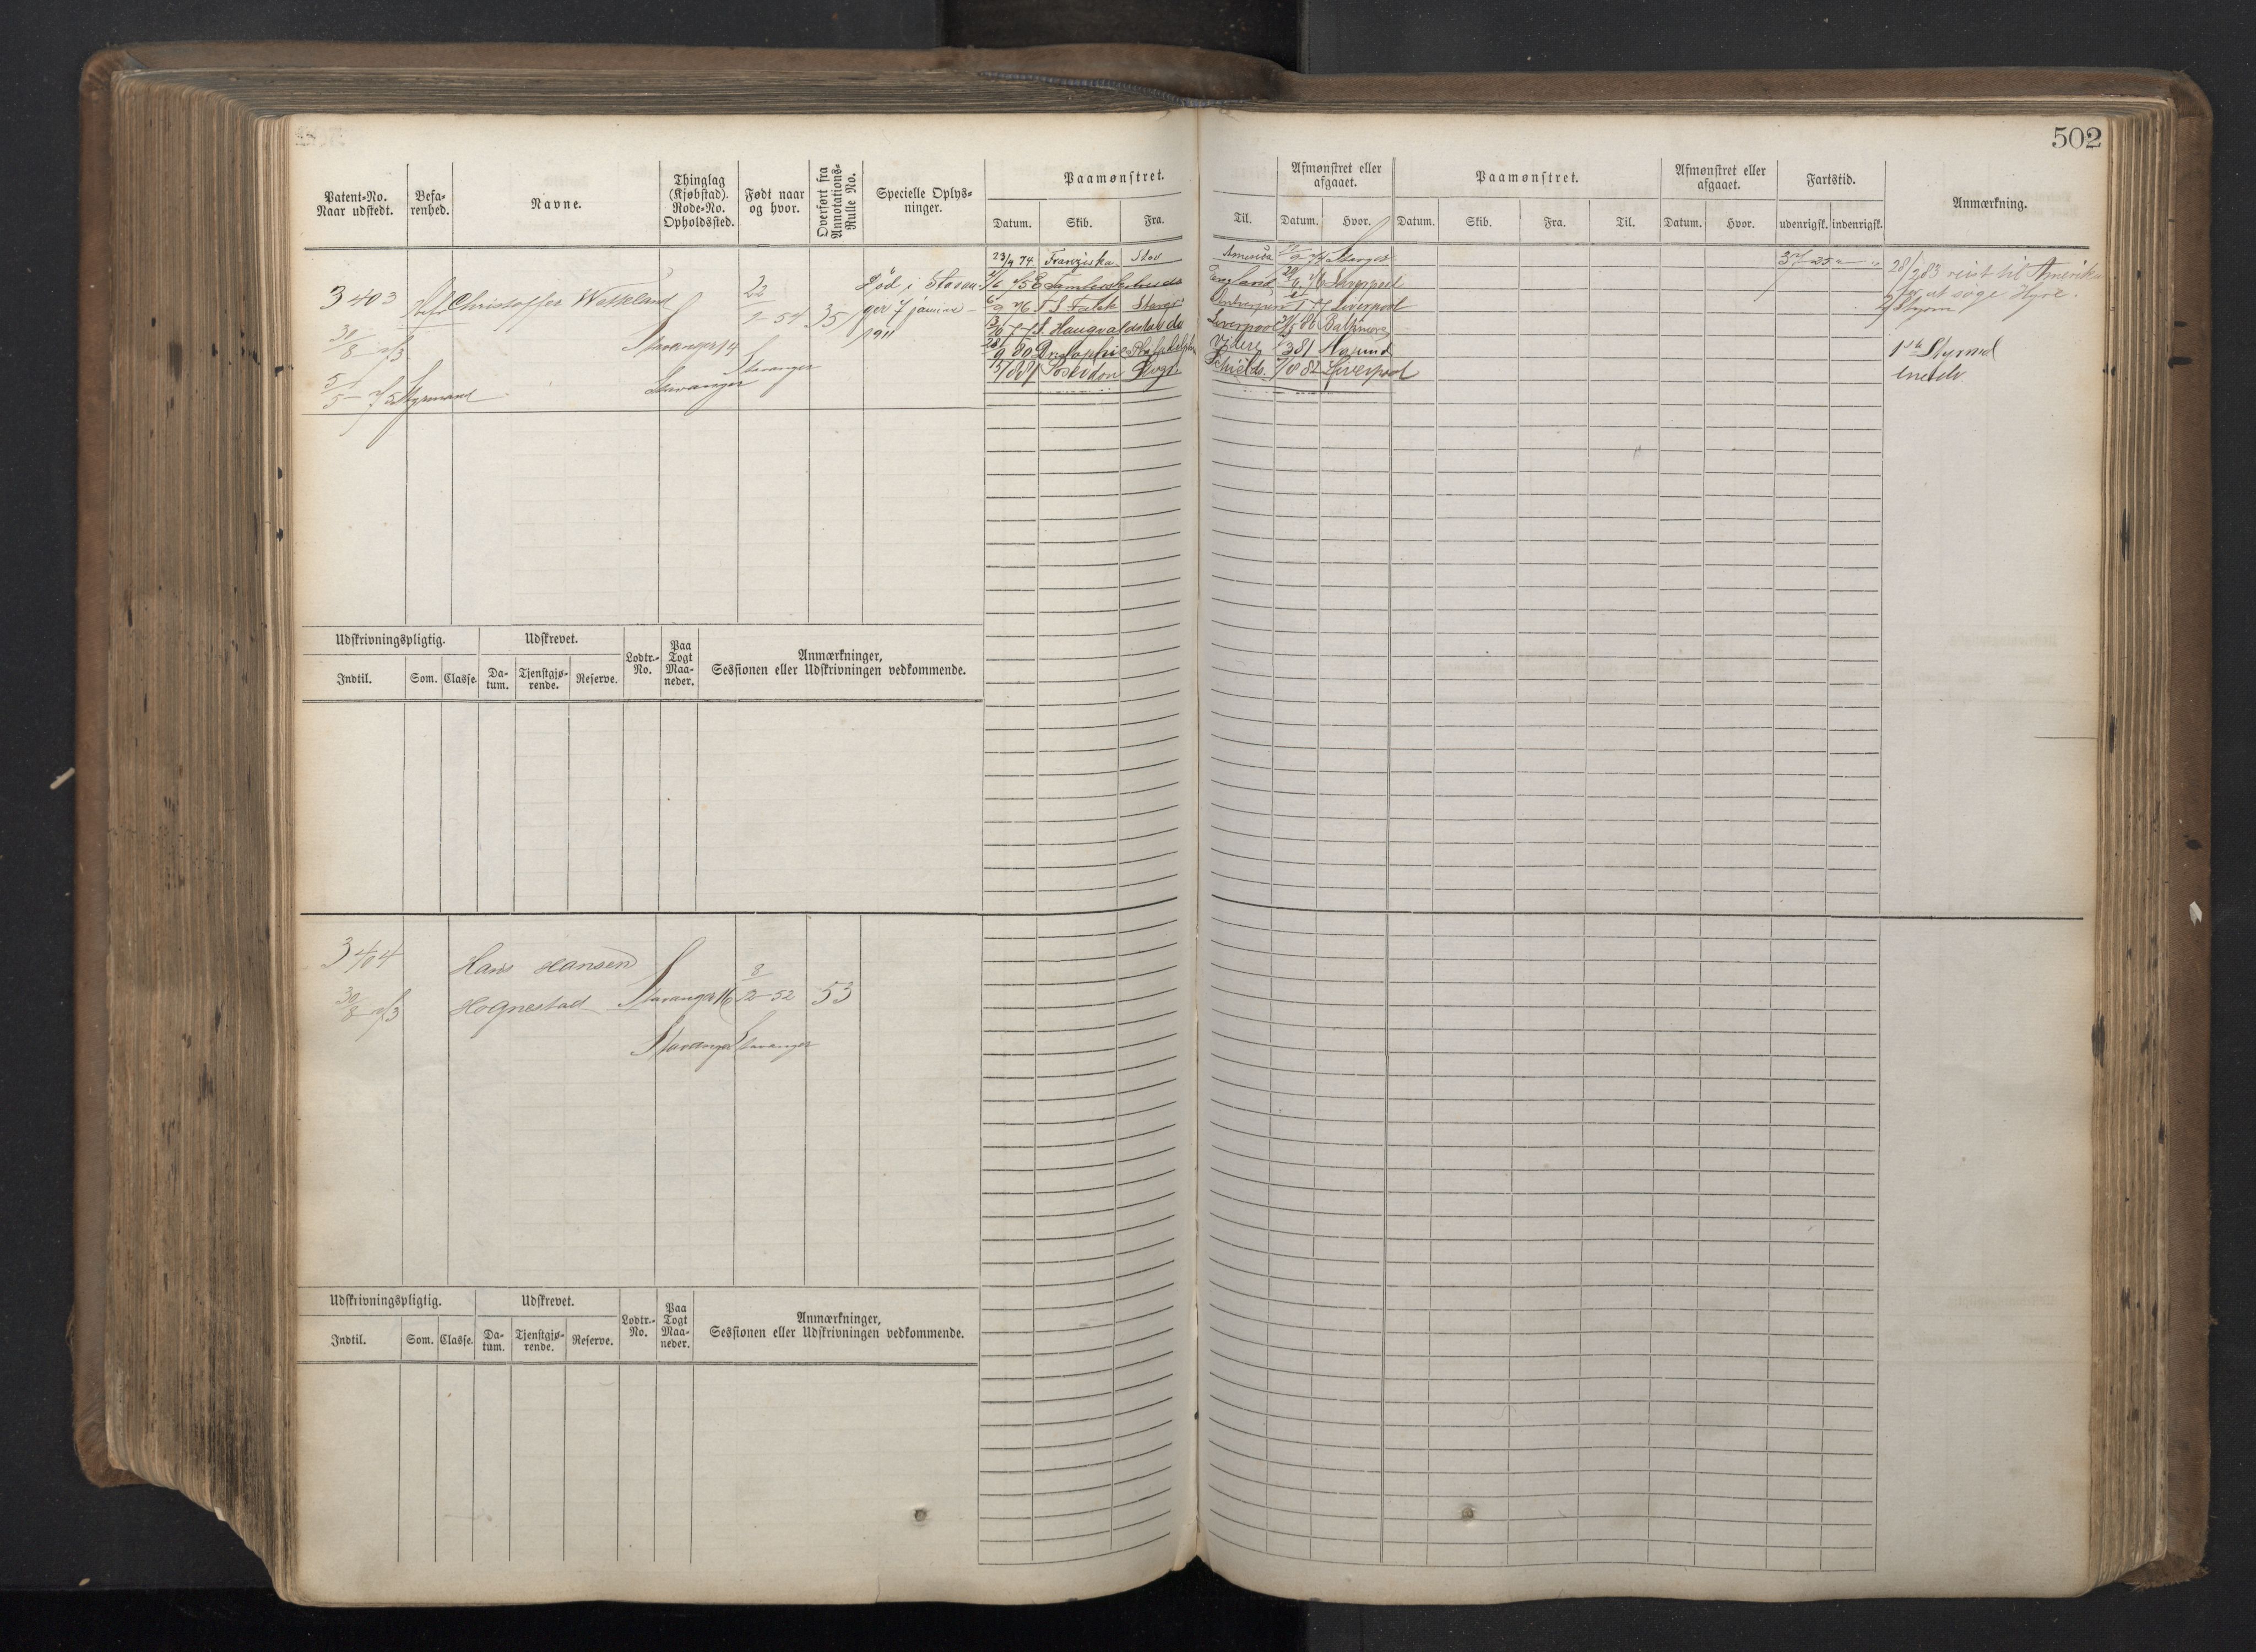 502
Patent-No. Naar udstedt.
Befarenhed.
Navne.
Thinglag (Kjøbstad). Rode-No. Opholdssted.
Født naar og hvor.
Overført fra Annotations-Rulle No.
Specielle Oplysninger.
Paamønstret.
Datum. Skib. Fra. Til.
Afmønstret eller afgaaet.
Datum. Hvor.
Paamønstret.
Datum. Skib. Fra. Til.
Afmønstret eller afgaaet.
Datum. Hvor.
Fartstid.
udenrigsk. indenrigsk.
Anmærkning.
3403
30/8 73
Christoffer Watkland
Stavanger 14
Stavanger
22
9-54
Stavanger
35
Død i Stavan-
ger 7 januar
1911
5/5 75 Styrmand
23/9 74 Franziska Stav America
75 England Liverpool
76 T S Falck Stavgr Liverpool
77 S. Haugvaldstad do Liverpool 80 Baltimore
28/9 80 Philadelphia Videre 81
81 Poseidon Shields 82 Liverpool
28/2 83 reist til Amerika
for at søge Hyre.
1ste Styrmd
Udskrivningspligtig.
Indtil. Som. Classe.
Udskrevet.
Datum. Tjenstgjørende. Reserve.
Lodtr.-No.
Paa Togt Maaneder.
Anmærkninger,
Sessionen eller Udskrivningen vedkommende.
3404
30/8 73
Hans Hansen
Hognestad
Stavanger 16
Stavanger
8
12-52
Stavanger
53
Udskrivningspligtig.
Indtil. Som. Classe.
Udskrevet.
Datum. Tjenstgjørende. Reserve.
Lodtr.-No.
Paa Togt Maaneder.
Anmærkninger,
Sessionen eller Udskrivningen vedkommende.